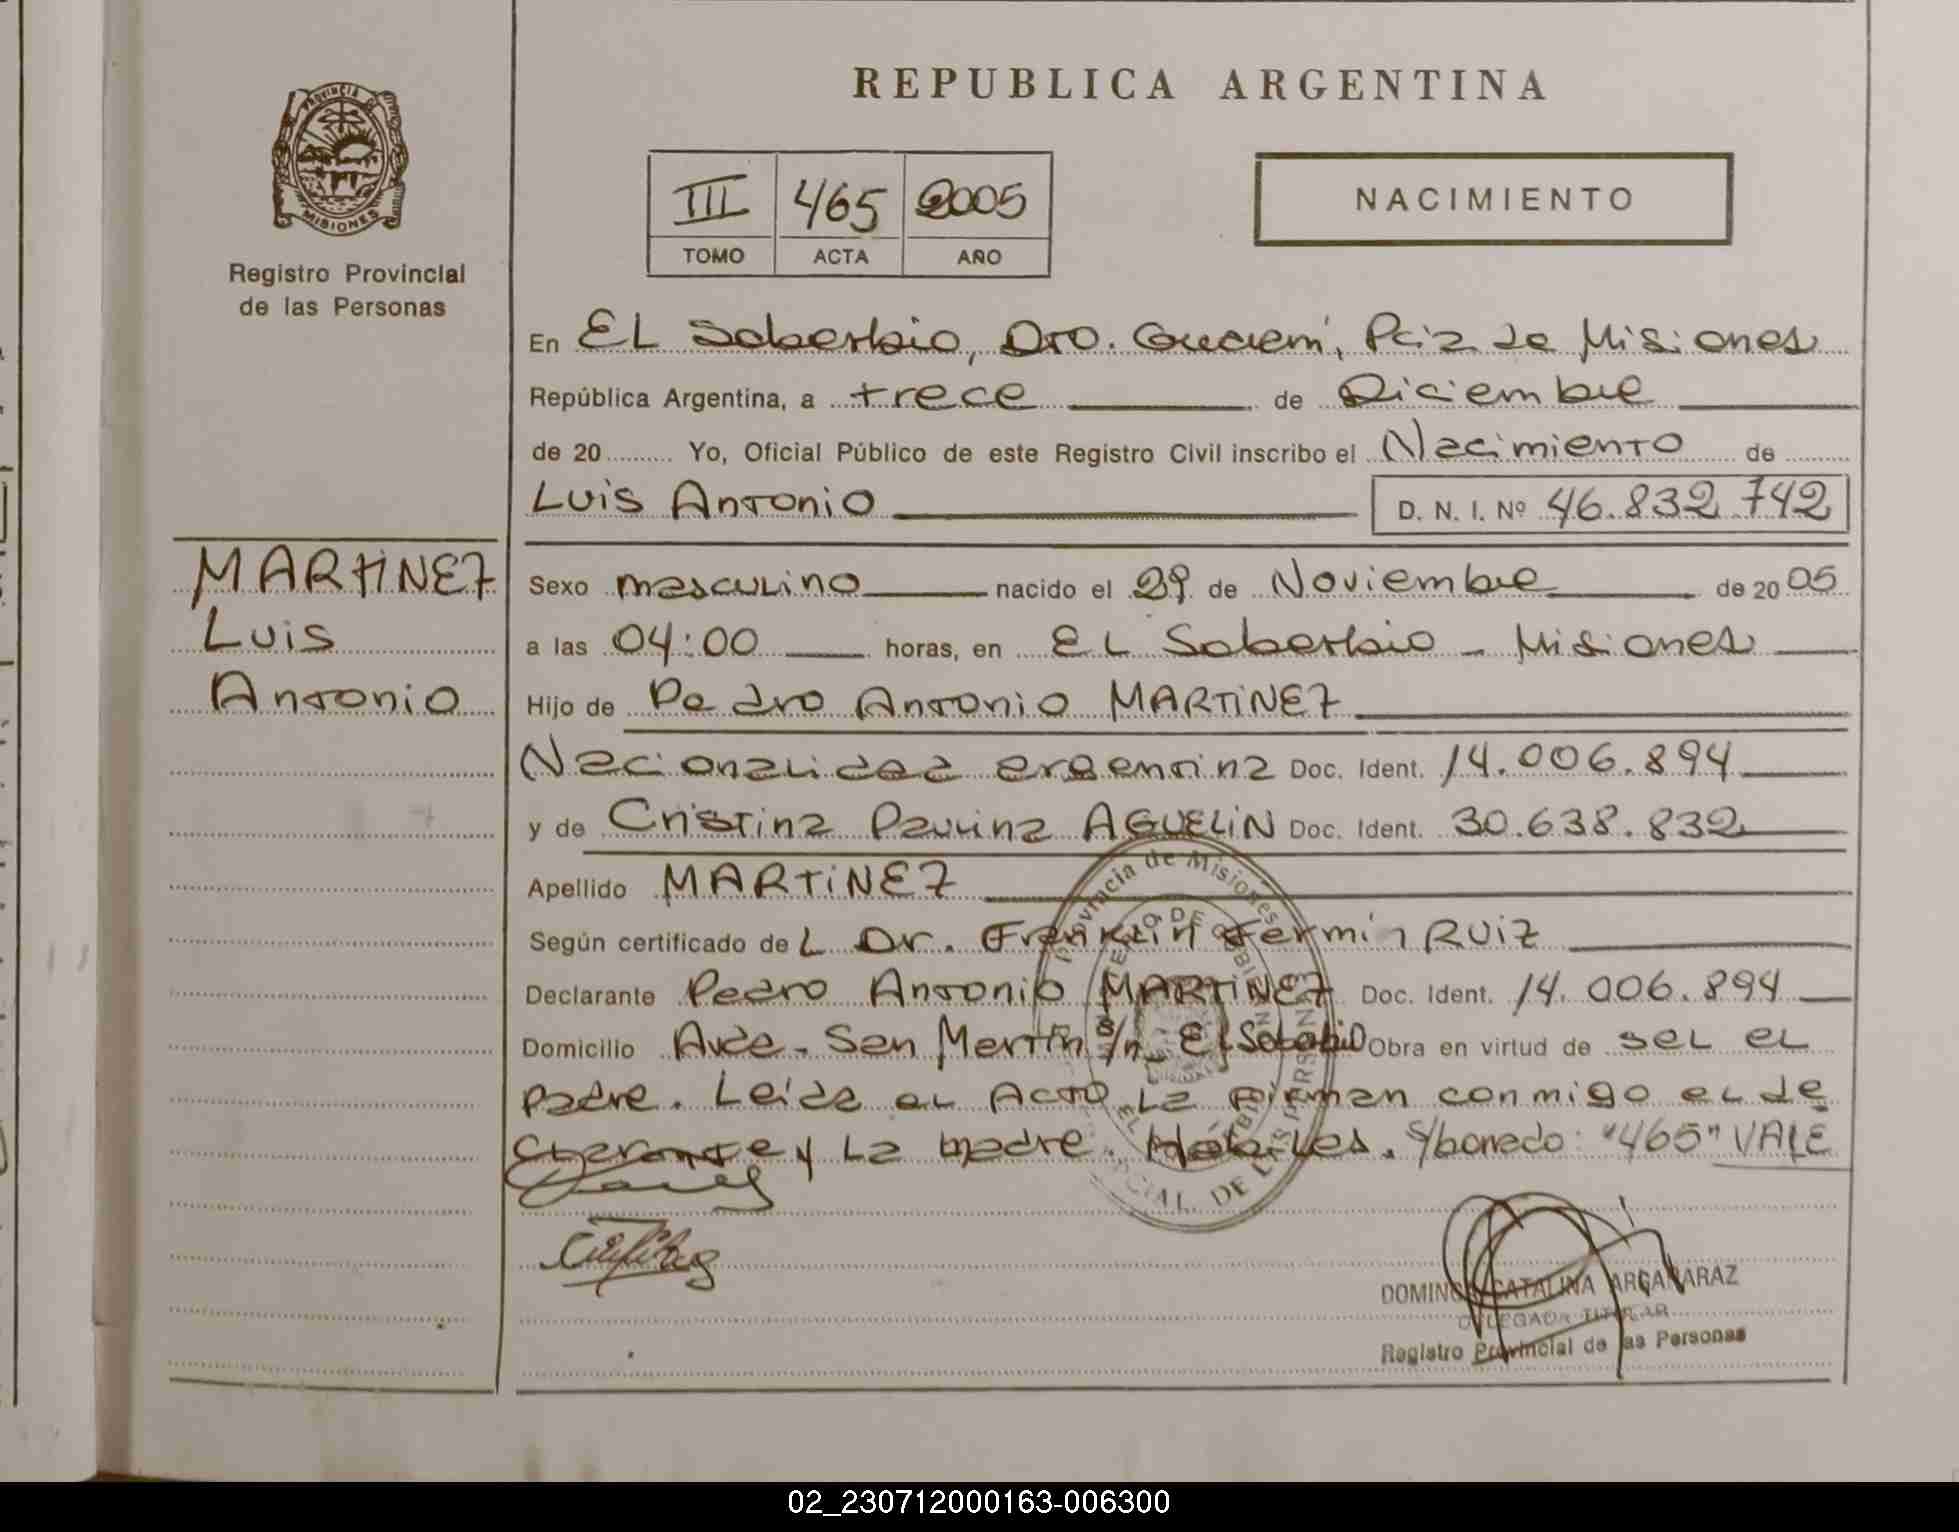 PROVINCIA DE
MISIONES
Registro Provincial
de las Personas
MARTINEZ
Luis
Antonio
REPUBLICA ARGENTINA
III 465 2005
TOMO ACTA AÑO
NACIMIENTO
En EL Soberbio, Dto. Guaraní, Pcia de Misiones
República Argentina, a trece de Diciembre
de 20 Yo, Oficial Público de este Registro Civil inscribo el Nacimiento de
Luis Antonio D. N. I. Nº 46.832.742
Sexo masculino nacido el 29 de Noviembre de 20 05
a las 04:00 horas, en EL Soberbio - Misiones
Hijo de Pedro Antonio MARTINEZ
Nacionalidad argentina Doc. Ident. 14.006.894
y de Cristina Paulina AGUELIN Doc. Ident. 30.638.832
Apellido MARTINEZ
Según certificado del Dr. Franklin Fermin RUIZ
Declarante Pedro Antonio MARTINEZ Doc. Ident. 14.006.894
Domicilio Avda. San Martín s/n El Soberbio Obra en virtud de ser el
padre. Leída el Acta La firman conmigo el de
clarante y La madre. Hábiles. s/borrado: "465" VALE
Provincia de Misiones
DOMINGA CATALINA ARGAÑARAZ
DELEGADA TITULAR
Registro Provincial de las Personas
02_230712000163-006300